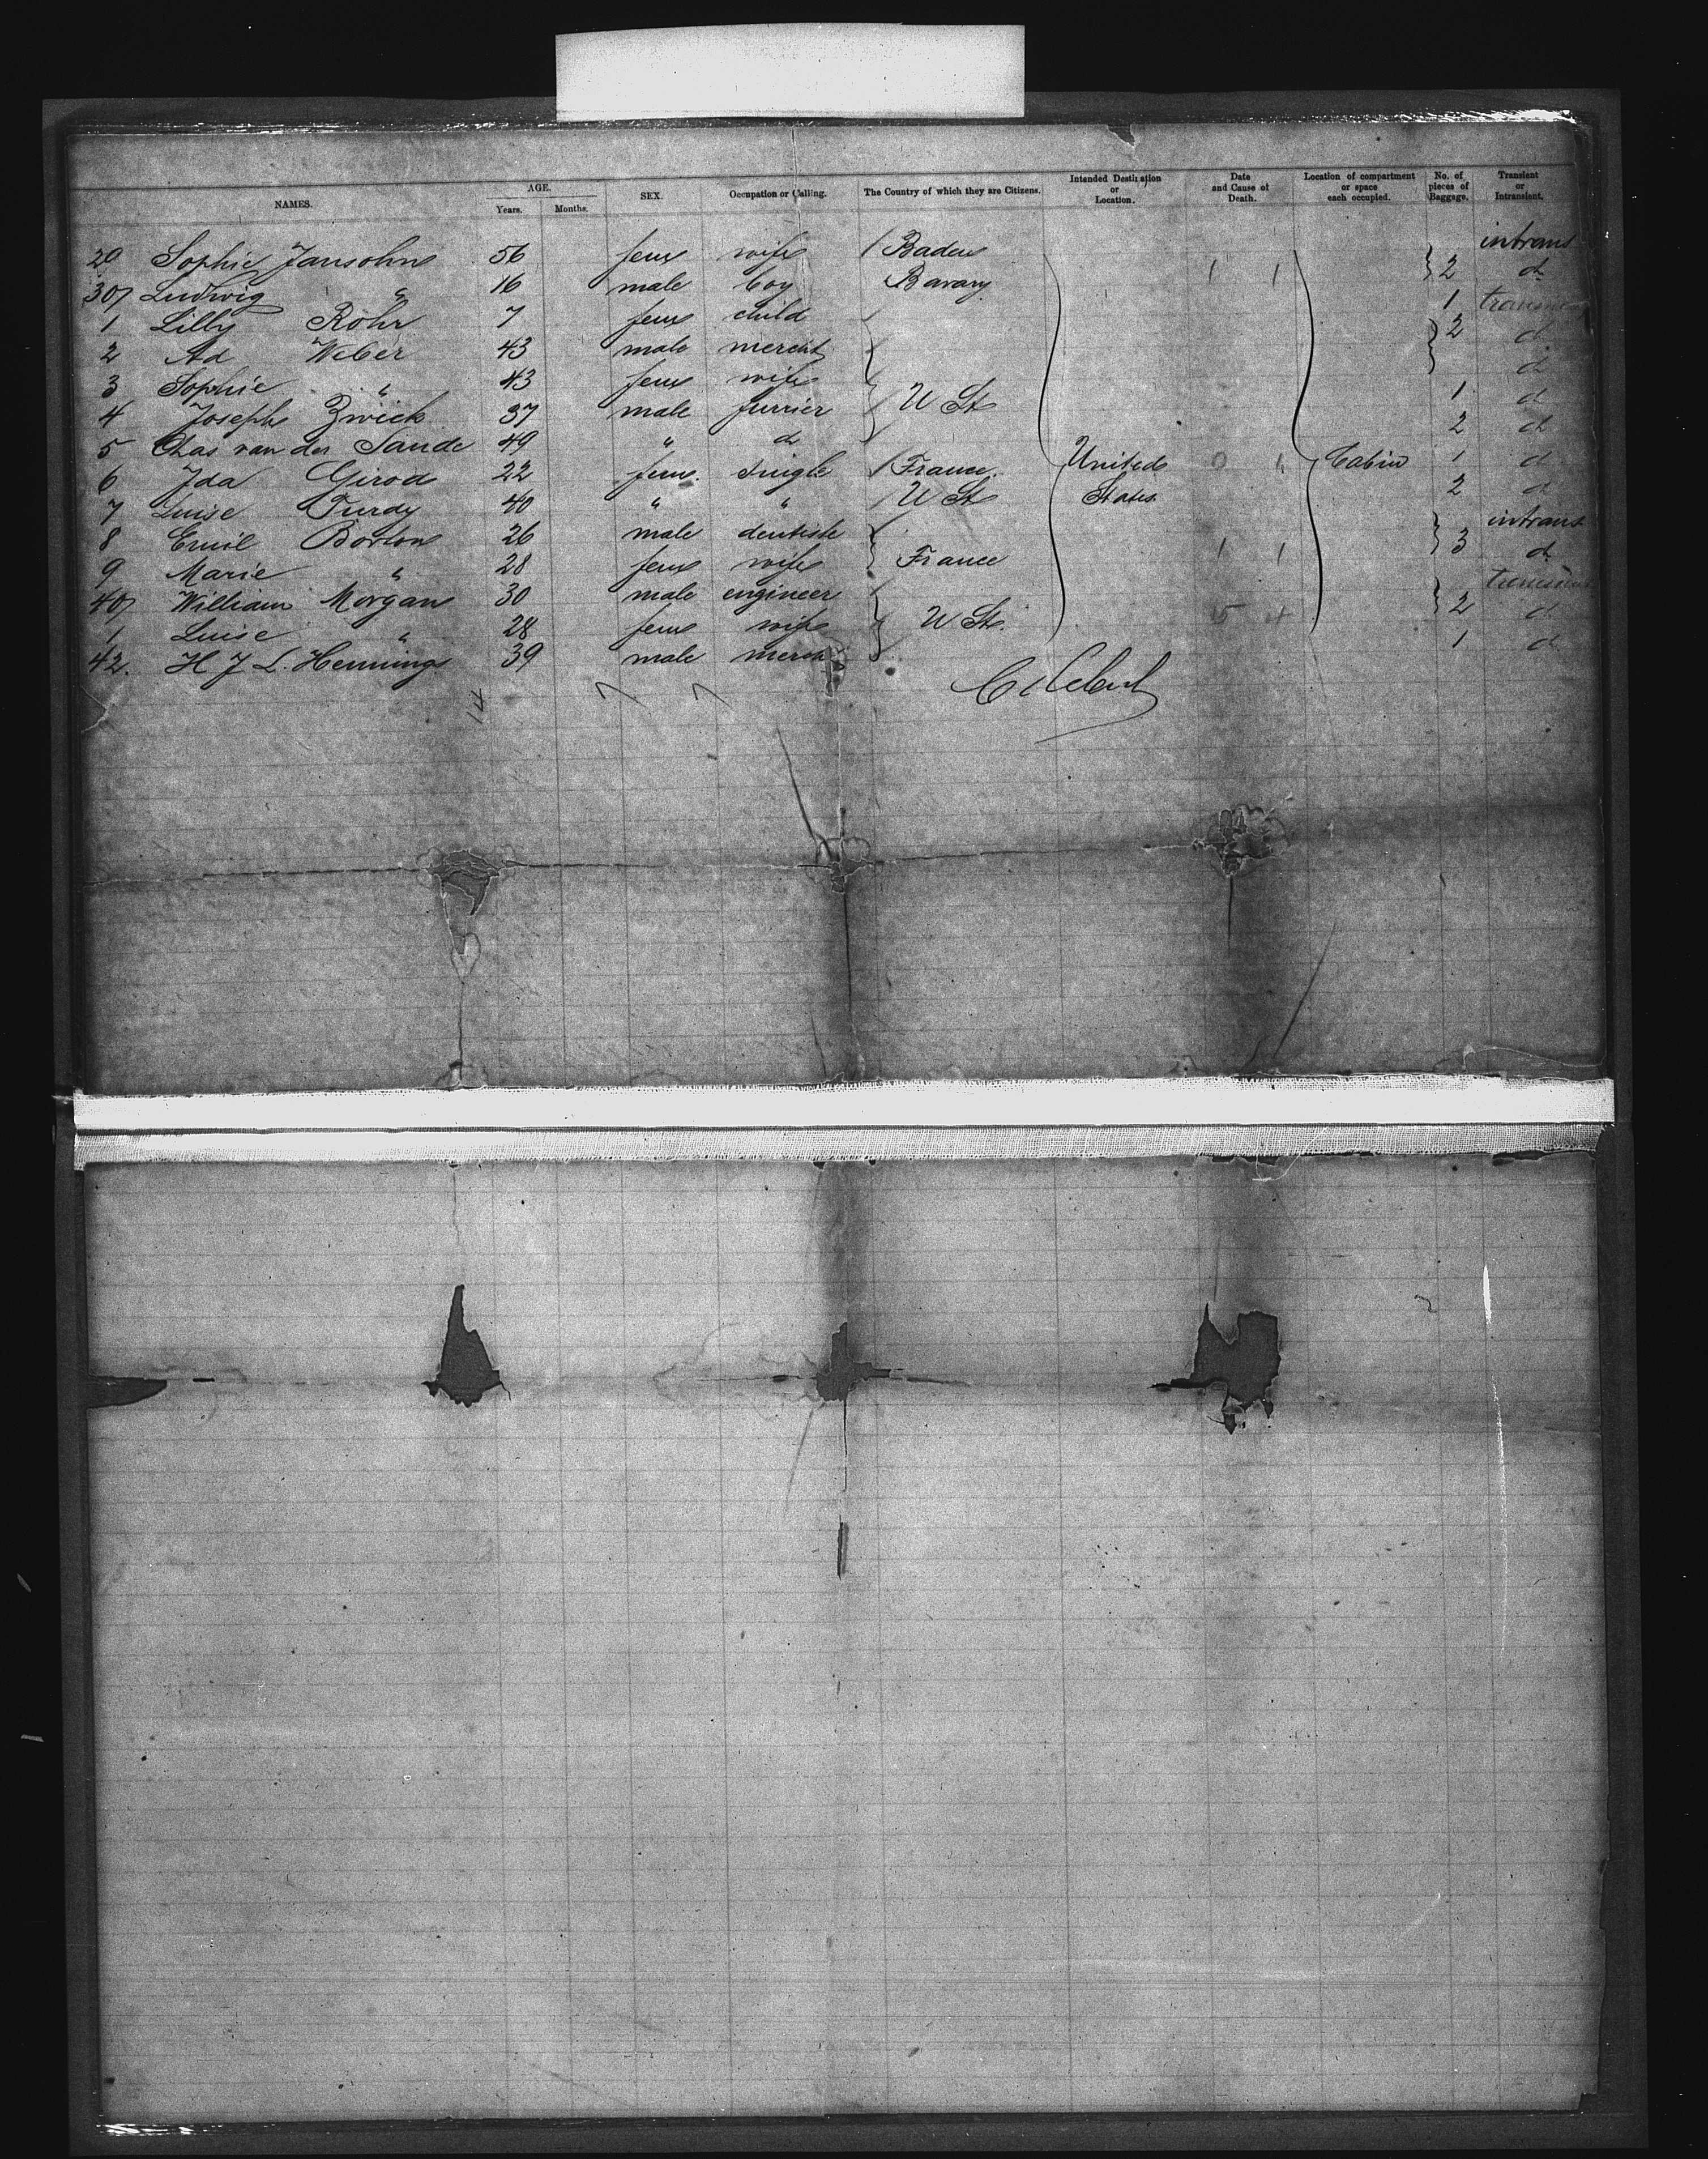 NAMES. AGE. Years. Months. SEX. Occupation or Calling. The Country of which they are Citizens. Intended Destination or Location. Date and Cause of Death. Location of compartment or space each occupied. No. of pieces of Baggage. Transient or Intransient.
29 Sophie Jansohn 56 fem wife Baden intrans
307 Ludwig " 16 male boy Bavary 2 d
1 Lilly Rohr 7 fem child 1
2 Ad Weber 43 male mercht 2 d
3 Sophie " 43 fem wife d
4 Joseph Zwick 37 male furrier U St 1 d
5 Chas van der Sande 49 " d 2 d
6 Ida Girod 22 fem. single France. United Cabin 1 d
7 Luise Purdy 40 " " U St States 2 d
8 Emil Borlon 26 male dentiste intrans
9 Marie " 28 fem wife France 3 d
407 William Morgan 30 male engineer
1 Luise " 28 fem wife U St. 2 d
42. H J L. Hennings 39 male merch 1 d
14 7 7